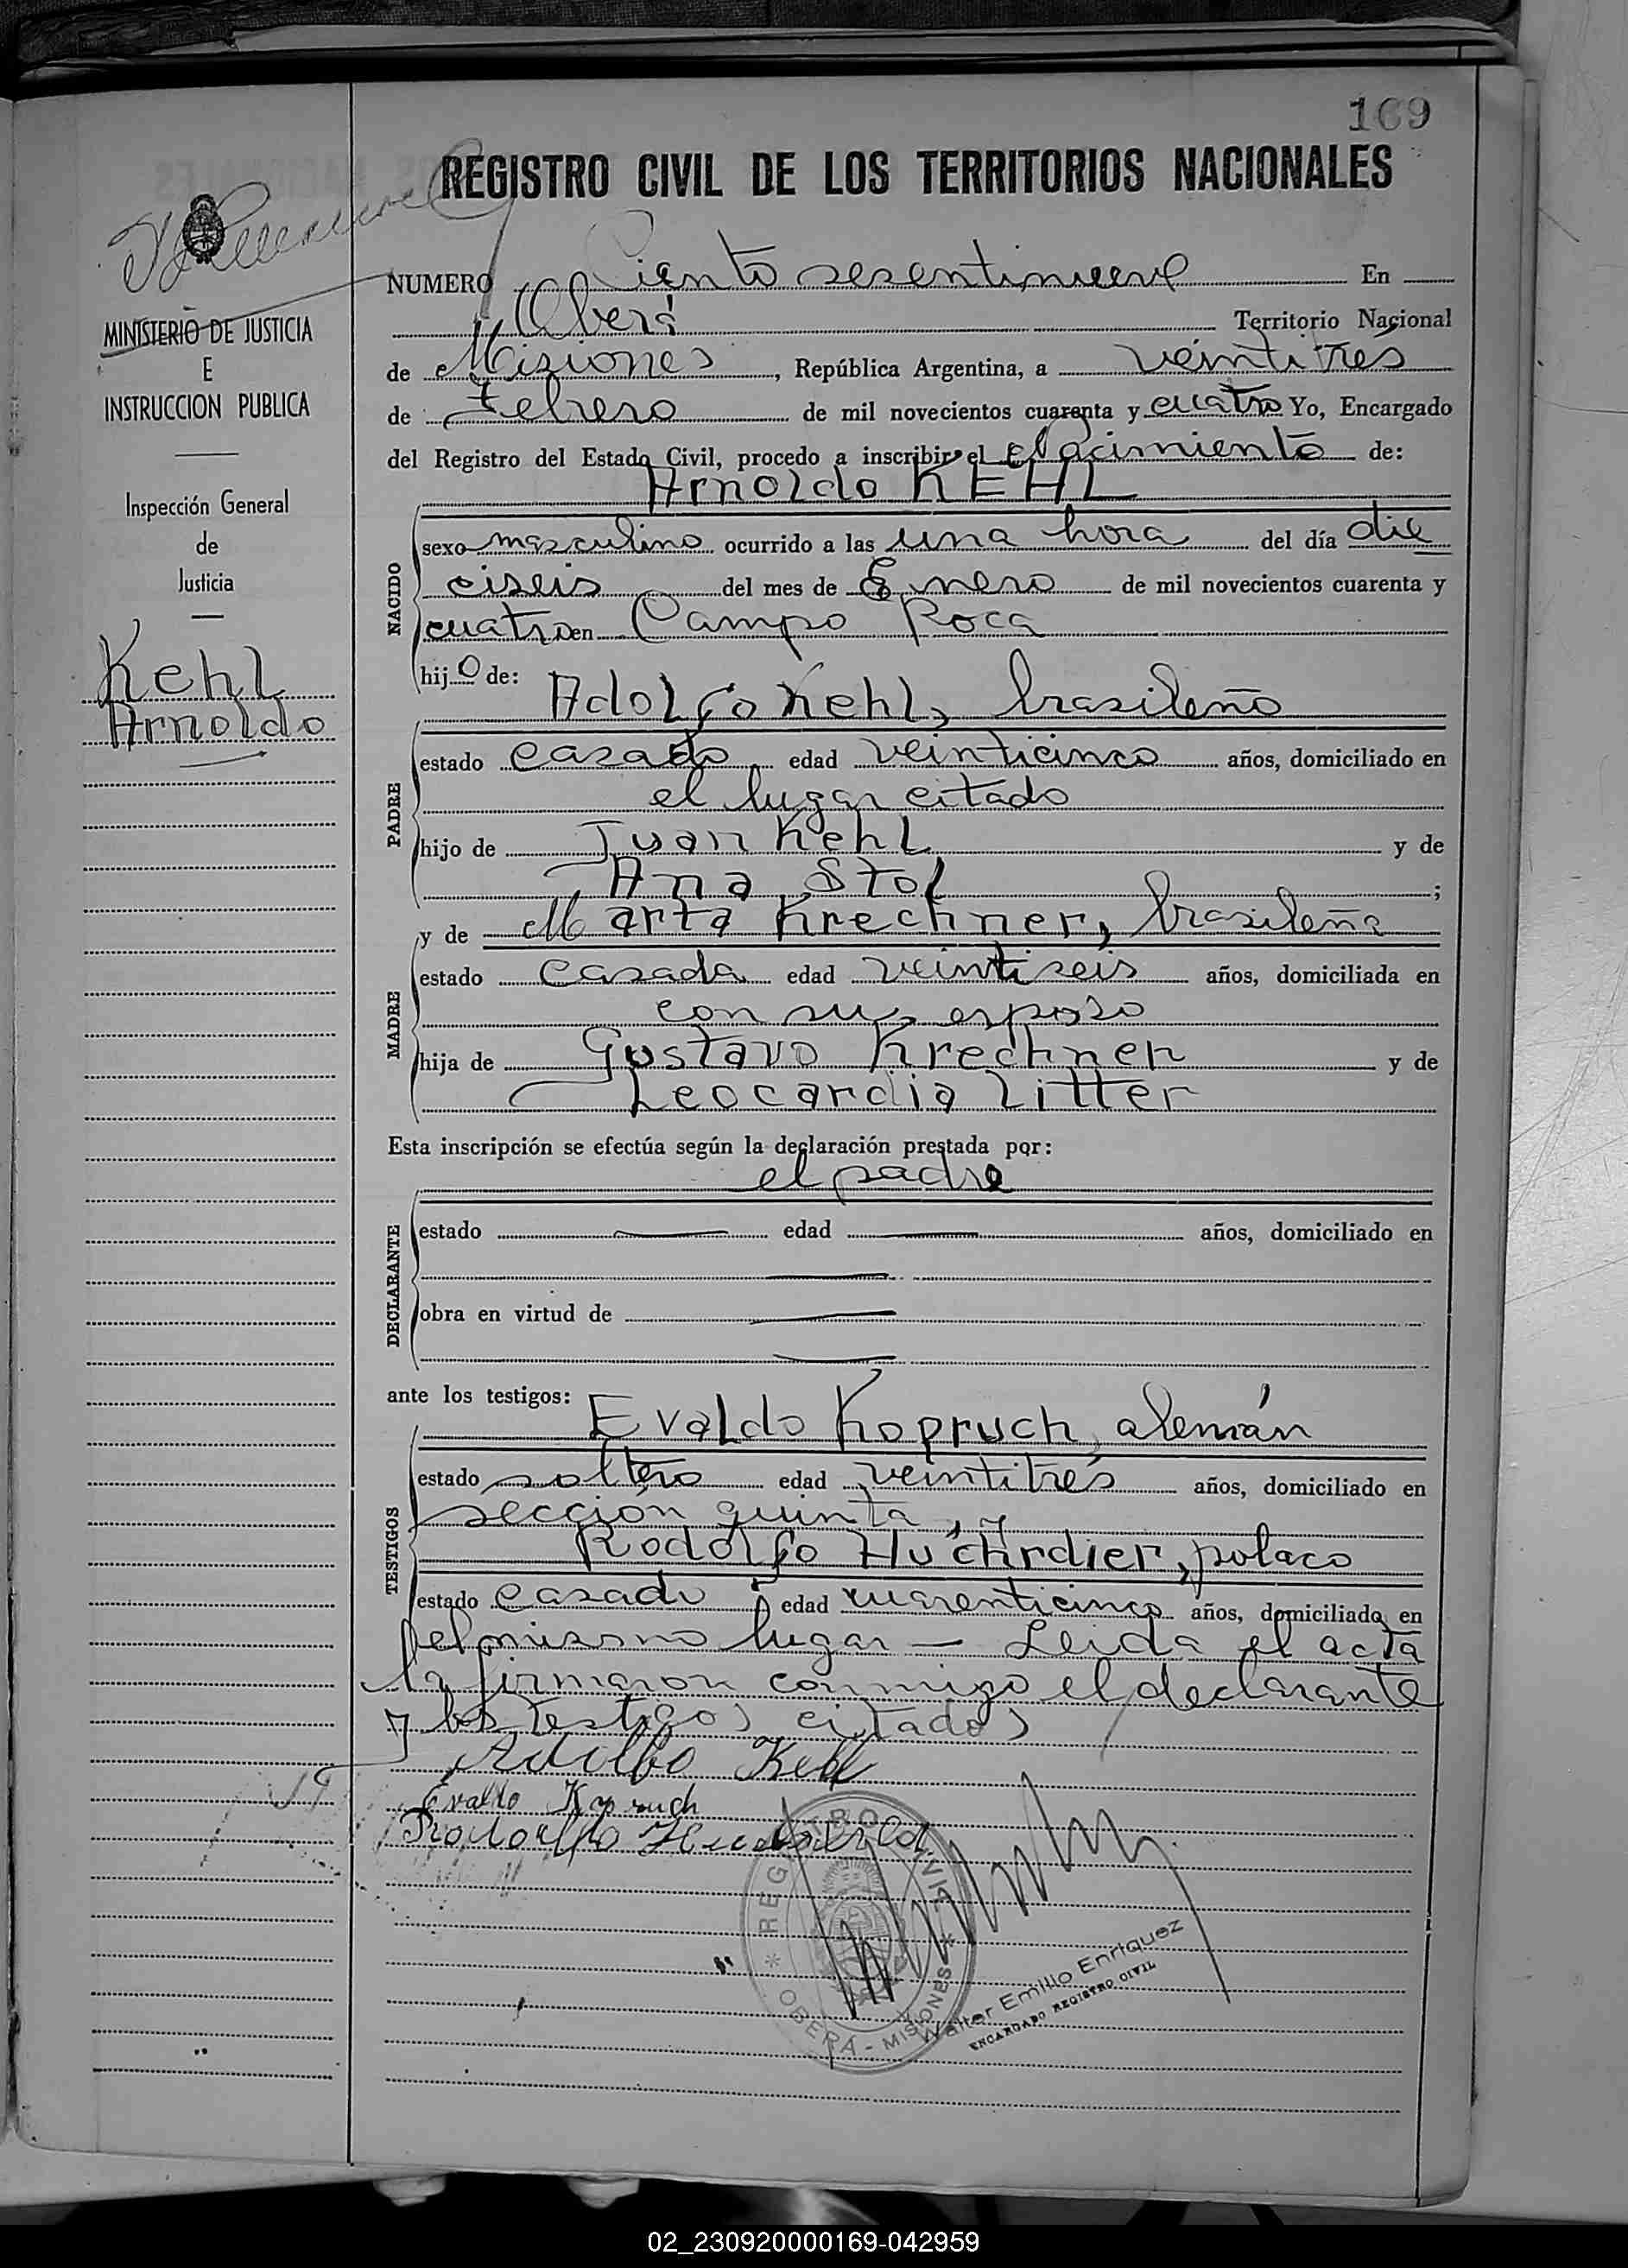 169
REGISTRO CIVIL DE LOS TERRITORIOS NACIONALES
NUMERO Ciento sesentinueve En
Oberá Territorio Nacional
de Misiones, República Argentina, a veintitrés
de Febrero de mil novecientos cuarenta y cuatro Yo, Encargado
del Registro del Estado Civil, procedo a inscribir el Nacimiento de:
Arnoldo KEHL
NACIDO
sexo masculino ocurrido a las una hora del día die
ciseis del mes de Enero de mil novecientos cuarenta y
cuatro en Campo Roca
hijo de:
Adolfo Kehl, brasileño
PADRE
estado casado edad veinticinco años, domiciliado en
el lugar citado
hijo de Juan Kehl y de
Ana Stol;
y de Marta Krechner, brasileña
MADRE
estado casada edad veintiseis años, domiciliada en
con su esposo
hija de Gustavo Krechner y de
Leocardia Litter
Esta inscripción se efectúa según la declaración prestada por:
el padre
DECLARANTE
estado edad años, domiciliado en
obra en virtud de
ante los testigos:
Evaldo Kopruch, alemán
TESTIGOS
estado soltero edad veintitrés años, domiciliado en
sección quinta, y
Rodolfo Huchrdier, polaco
estado casado edad cuarenticinco años, domiciliado en
el mismo lugar — Leida el acta
la firmaron conmigo el declarante
y los testigos citados
Adolfo Kehl
Evaldo Kopruch
REGISTRO CIVIL
OBERA - MISIONES
Walter Emilio Enriquez
ENCARGADO REGISTRO CIVIL
MINISTERIO DE JUSTICIA
E
INSTRUCCION PUBLICA
Inspección General
de
Justicia
Kehl
Arnoldo
02_230920000169-042959